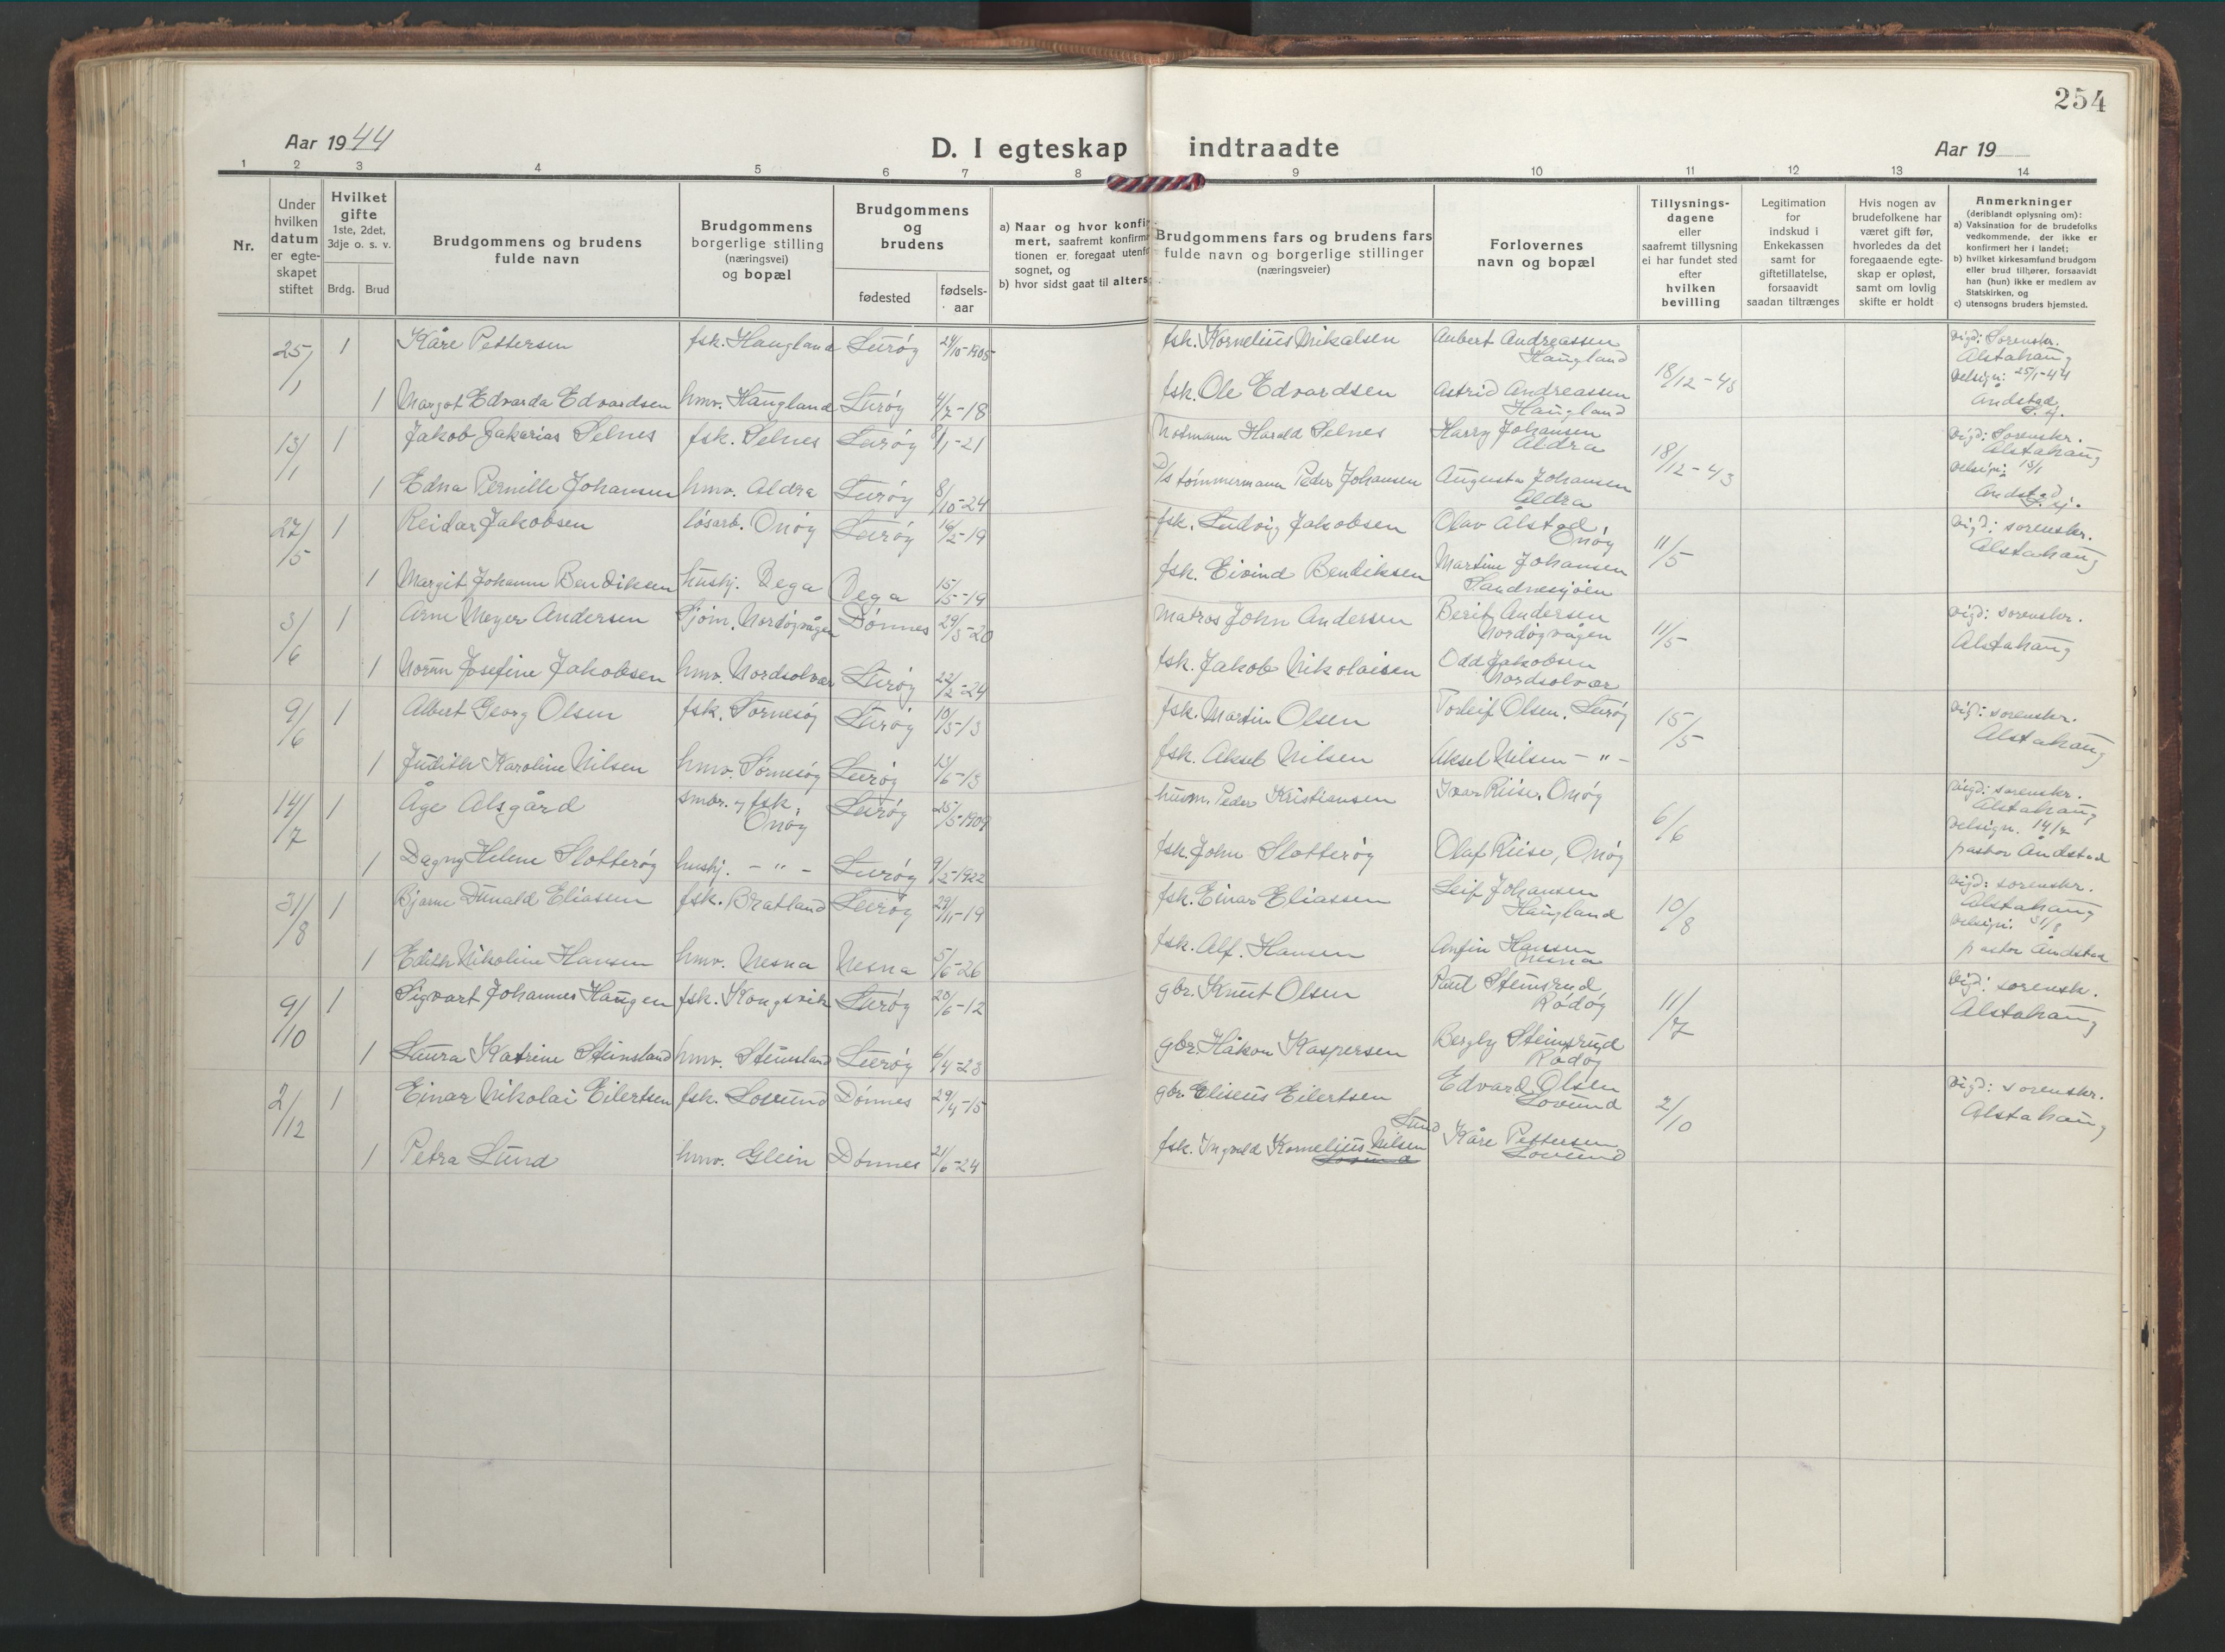 254
Aar 1944
D. I egteskap indtraadte
Aar 19
1 2 3 4 5 6 7 8 9 10 11 12 13 14
Nr.
Under
hvilken
datum
er egte-
skapet
stiftet
Hvilket
gifte
1ste, 2det,
3dje o. s. v.
Brdg. Brud
Brudgommens og brudens
fulde navn
Brudgommens
borgerlige stilling
(næringsvei)
og bopæl
Brudgommens
og
brudens
fødested
fødsels-
aar
a) Naar og hvor konfir
mert, saafremt konfirm
tionen er foregaat utenfo
sognet, og
b) hvor sidst gaat til alters
Brudgommens fars og brudens fars
fulde navn og borgerlige stillinger
(næringsveier)
Forlovernes
navn og bopæl
Tillysnings-
dagene
eller
saafremt tillysning
ei har fundet sted
efter
hvilken
bevilling
Legitimation
for
indskud i
Enkekassen
samt for
giftetillatelse,
forsaavidt
saadan tiltrænges
Hvis nogen av
brudefolkene har
været gift før,
hvorledes da det
foregaaende egte-
skap er opløst,
samt om lovlig
skifte er holdt
Anmerkninger
(deriblandt oplysning om):
a) Vaksination for de brudefolks
vedkommende, der ikke er
konfirmert her i landet;
b) hvilket kirkesamfund brudgom
eller brud tilhører, forsaavidt
han (hun) ikke er medlem av
Statskirken, og
c) utensogns bruders hjemsted.
25/1 1 Kåre Pettersen fsk. Haugland Lurøy 24/10-1905 fsk. Kornelius Nikalsen Aubert Andreassen
Haugland
18/12-43
Vigd: Sorenskr.
Alstahaug
Velsign: 25/1-44
Andstad
S. y.
1 Margot Edvarda Edvardsen hmv. Haugland Lurøy 4/7-18 fsk. Ole Edvardsen Astrid Andreassen
Haugland
13/1 1 Jakob Zakarias Selnes fsk. Selnes Lurøy 8/1-21 Notmann Harald Selnes Harry Johansen
Aldra
18/12-43
Vigd: Sorenskr.
Alstahaug
Velsign: 13/1
Andstad
S. y.
1 Edna Pernille Johansen hmv. Aldra Lurøy 8/10-24 D/s tømmermann Peder Johansen Augusta Johansen
Aldra
27/5 1 Reidar Jakobsen løsarb. Onøy Lurøy 16/2-19 fsk. Ludvig Jakobsen Olav Ålstad,
Onøy
11/5
Vigd: sorenskr.
Alstahaug
1 Margit Johanne Bendiksen hushj. Vega Vega 15/5-19 fsk. Eivind Bendiksen Martine Johansen
Sandnesjøen
3/6 1 Arne Meyer Andersen Sjøm. Nordøyvågen Dønnes 29/3-20 Matros John Andersen Berit Andersen
Nordøyvågen
11/5
Vigd: sorenskr.
Alstahaug
1 Norun Josefine Jakobsen hmv. Nordsolvær Lurøy 22/2-24 fsk. Jakob Nikolaisen Odd Jakobsen
Nordsolvær
9/6 1 Albert Georg Olsen fsk. Sørnesøy Lurøy 10/5-13 fsk. Martin Olsen Torleif Olsen, Lurøy
15/5
Vigd: sorenskr.
Alstahaug
1 Judith Karoline Nilsen hmv. Sørnesøy Lurøy 13/6-13 fsk. Aksel Nilsen Aksel Nilsen - " -
14/7 1 Åge Alsgård småbr. og fsk.
Onøy
Lurøy 25/5-1909 husm. Peder Kristiansen Ivar Riise, Onøy
6/6
Vigd: sorenskr.
Alstahaug
Velsign. 14/7
pastor Andstad
1 Dagny Helene Slotterøy hushj. - " - Lurøy 9/2-1922 fsk. John Slotterøy Olaf Riise, Onøy
31/8 1 Bjarne Dunald Eliassen fsk. Bratland Lurøy 29/11-19 fsk. Einar Eliassen Leif Johansen
Haugland
10/8
Vigd: sorenskr.
Alstahaug
Velsign: 31/8
pastor Andstad
1 Edith Nikoline Hansen hmv. Nesna Nesna 5/6-26 fsk. Alf. Hansen Anfin Hansen
Nesna
9/10 1 Sigvart Johannes Haugen fsk. Kongsvik Lurøy 20/6-12 gbr. Knut Olsen Paul Steinsrud
Rødøy
11/7
Vigd: sorenskr.
Alstahaug
1 Laura Katrine Stensland hmv. Stensland Lurøy 6/4-23 gbr. Håkon Kaspersen Bergly Steinsrud
Rødøy
2/12 1 Einar Nikolai Eilertsen fsk. Lovund Dønnes 29/4-15 gbr. Eliseus Eilertsen Edvard Olsen
Lovund
2/10
Vigd: sorenskr.
Alstahaug
1 Petra Lund hmv. Glein Dønnes 21/6-24 fsk. Ingvald Kornelius Nilsen Lund
Lovund
Kåre Pettersen
Lovund